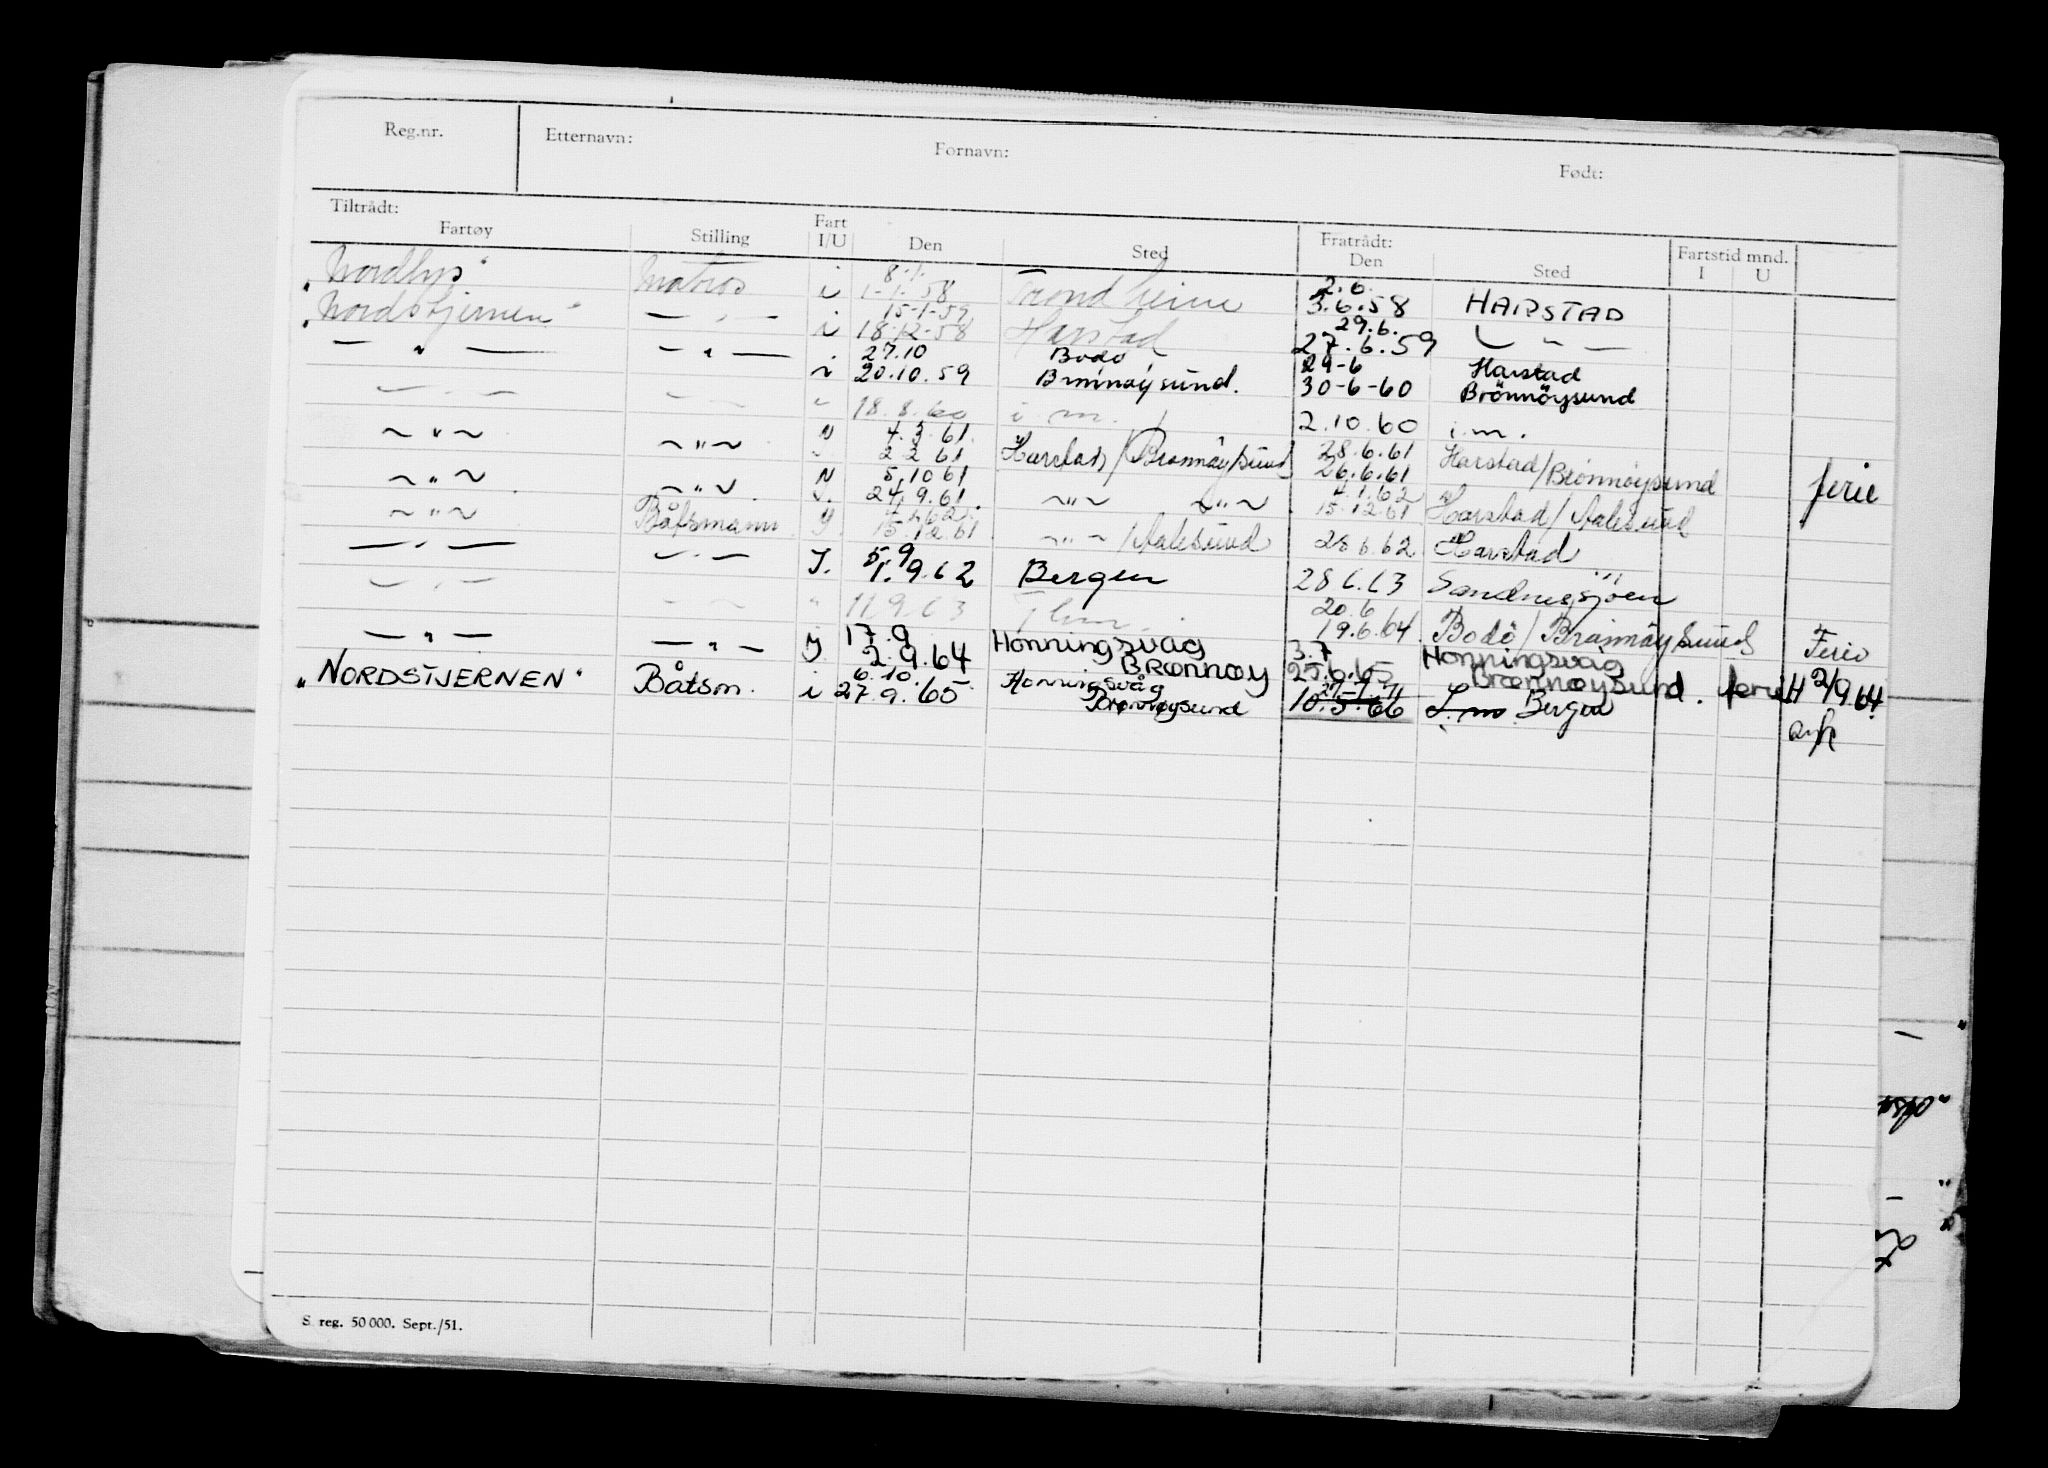 Reg.nr. Etternavn: Fornavn: Født:
Tiltrådt: Fratrådt:
Fartøy Stilling Fart I/U Den Sted Den Sted Fartstid mnd. I U
8.1. 2.6.
"Nordlys" Matros i 1-1-58 Trondheim 3.6.58 HARSTAD
15-1-59 29.6.
"Nordstjernen" — " — i 18-12-58 Harstad 27.6.59 — " —
27.10 Bodö 29-6 Harstad
— " — — " — i 20.10.59 Brönnöysund. 30-6-60 Brönnöysund
— " — — " — " 18.8.60 i.m. 2.10.60 i.m.
4.3.61 28.6.61
~ " ~ ~ " ~ 2 2 61 Harstad/Brønnøysund 26.6.61 Harstad/Brønnøysund
5.10 61 4.1.62
~ " ~ ~ " ~ J. 24.9.61. ~ " ~ ~ " ~ 15.12.61 Harstad/Aalesund ferie
4.1.62.
~ " ~ Båtsmann J. 15.12.61 ~ " ~ /Aalesund 28 6.62 Harstad
5.9
— " — — " — J. 1.9.62 Bergen 28 6.63 Sandnessjøen
20.6
— " — — " — " 11.9.63 Thm. 19.6.64. Bodö/Brønnøysund Ferie
17.9 Honningsvåg 3.7 Honningsvåg
— " — — " — J. 2.9.64 BRØNNØY 25.6.65 BRØNNØYSUND. ferie H 2/9.64
6.10. Honningsvåg
"NORDSTJERNEN" Båtsm. i 27.9.65 Brønnøysund 10.5.66 I.m. Bergen
S. reg. 50 000. Sept./51.